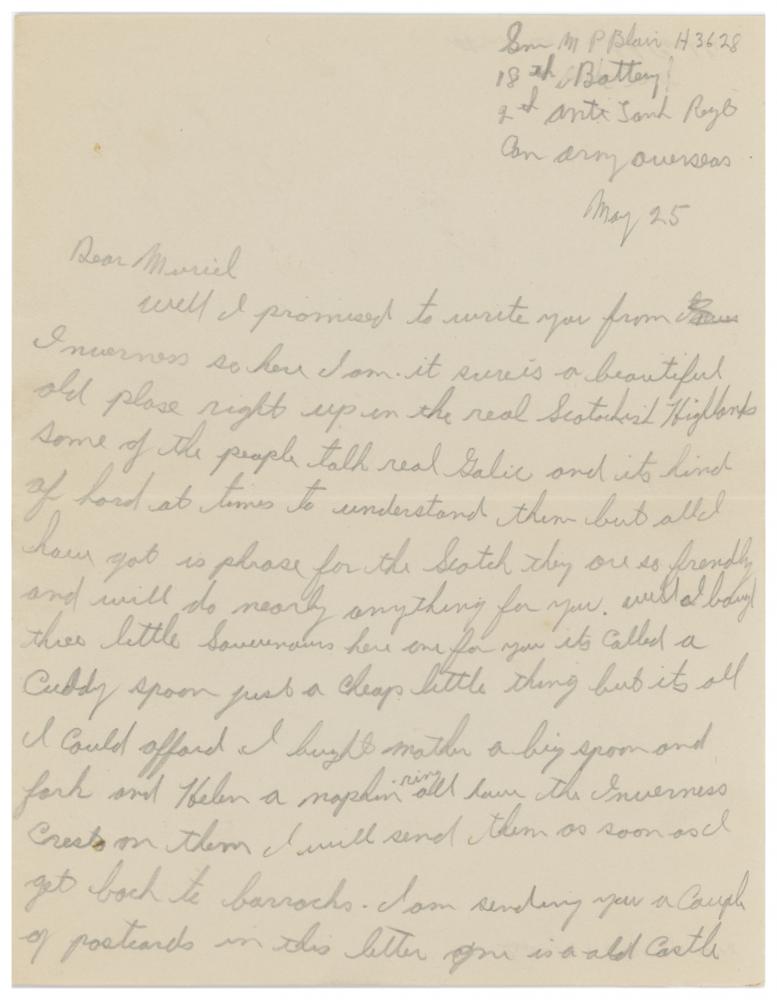 Gnr M P Blair H3628
18th Battery
2nd Anti Tank Regt
Can Army Overseas
May 25
Dear Muriel
well I promised to write you from
Inverness so here I am. it sure is a beautiful
old plase right up in the real Highlands
some of the people talk real Galic and its kind
of hard at times to understand them but all I
have got is phrase for the Scotch they are so frendly
and will do nearly anything for you. well I bougt
three little here one for you its called a
Cuddy spoon just a cheap little thing but its all
I could afford I bught mother a big spoon and
fork and Helen a napkin ring all have the Inverness
Crests on them I will send them as soon as I
get back to barracks. I am sending you a Couple
of postcards in this letter one is a old Castle